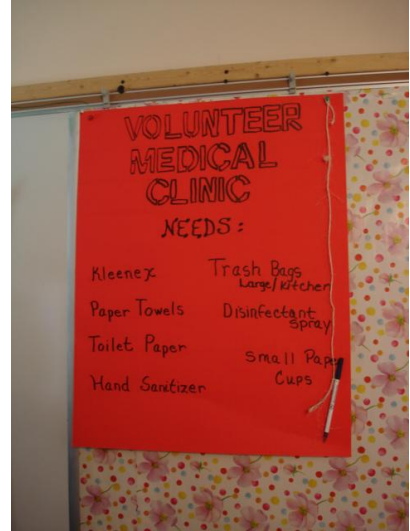 VOLUNTEER
MEDICAL
CLINIC
NEEDS:
Kleenex
Paper Towels
Toilet Paper
Hand Sanitizer
Trash Bags
Large/Kitchen
Disinfectant
Spray
Small Paper
Cups